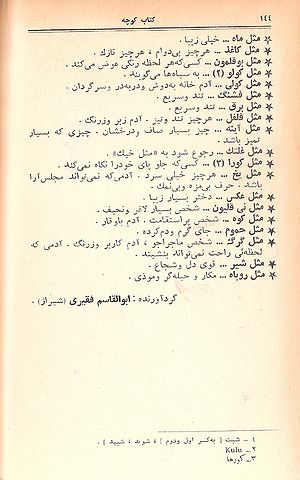 ۱۴۴ کتاب کوچه
★ مثل ماه ... خیلی زیبا .
★ مثل کاغذ ... هرچیز بی‌دوام ، هرچیز نازك .
★ مثل بوقلمون ... کسی‌که‌هر لحظه رنگی عوض می‌کند .
★ مثل کولو (۲) ... به سیاهها می‌گویند.
★ مثل کولی ... آدم خانه به‌دوش ودربه‌در وسرگردان .
★ مثل فشنگ ... تند وسریع .
★ مثل برق ... تند وسریع .
★ مثل فلفل ... هرچیز تند وتیز . آدم زبر وزرنگ .
★ مثل آینه ... چیز بسیار صاف ودرخشان . چیزی که بسیار
تمیز باشد .
★ مثل غلت ... رجوع شود به «مثل خیك» .
★ مثل کورا (۳) ... کسی‌که جلو پای خودرا نگاه نمی‌کند.
★ مثل یخ ... هرچیز خیلی سرد . آدمی‌که نمی‌تواند مجلس‌آرا
باشد . حرف بی‌مزه وبی‌نمك .
★ مثل عکس ... دختر بسیار زیبا .
★ مثل نی قلیون ... شخص بسیار لاغر ونحیف .
★ مثل کوه ... شخص پراستقامت . آدم باوقار .
★ مثل حموم ... جای گرم ودم‌کرده .
★ مثل گرگ ... شخص ماجراجو ، آدم کاربر وزرنگ . آدمی که
لحظه‌ئی راحت نمی‌تواند بنشیند .
★ مثل شیر ... قوی دل وشجاع .
★ مثل روباه ... مکار و حیله‌گر وموذی .
گردآورنده : ابوالقاسم فقیری (شیراز) .
۱ – شیت [ به‌کسر اول ودوم ] ، شوید ، شبید .
۲ – Kulu
۳ – کورها